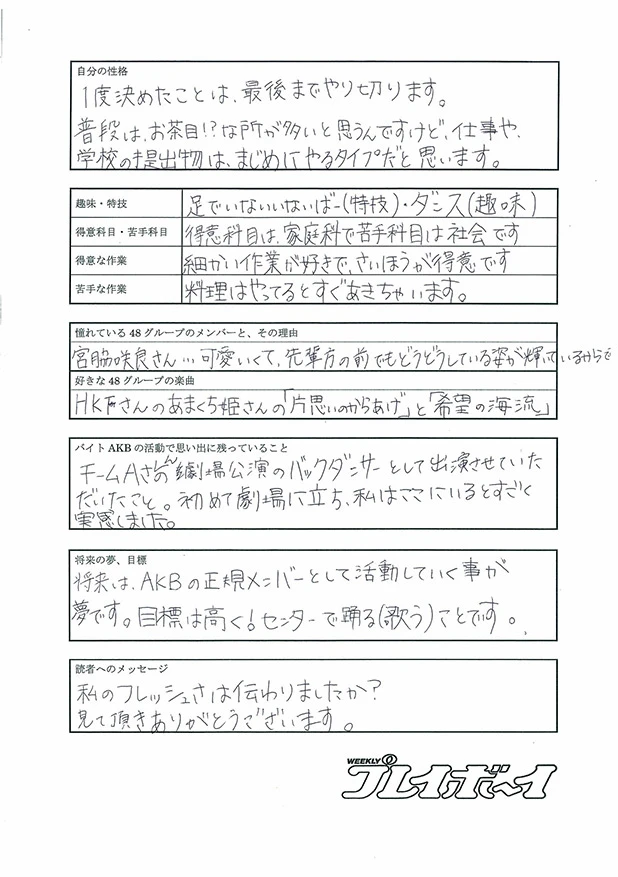 自分の性格
1度決めたことは、最後までやり切ります。
普段は、お茶目!?な所が多いと思うんですけど、仕事や、
学校の提出物は、まじめにやるタイプだと思います。
趣味・特技 足でいないいないばー(特技)・ダンス(趣味)
得意科目・苦手科目 得意科目は、家庭科で苦手科目は社会です
得意な作業 細かい作業が好きで、さいほうが得意です
苦手な作業 料理はやってるとすぐあきちゃいます。
憧れている48グループのメンバーと、その理由
宮脇咲良さん…可愛いくて、先輩方の前でもどうどうしている姿が輝いているからです
好きな48グループの楽曲
HKTさんのあまくち姫さんの「片思いのからあげ」と「希望の海流」
バイトAKBの活動で思い出に残っていること
チームAさんの劇場公演のバックダンサーとして出演させていた
だいたこと。初めて劇場に立ち、私はここにいるとすごく
実感しました。
将来の夢、目標
将来は、AKBの正規メンバーとして活動していく事が
夢です。目標は高く!センターで踊る(歌う)ことです。
読者へのメッセージ
私のフレッシュさは伝わりましたか?
見て頂きありがとうございます。
WEEKLY
プレイボーイ